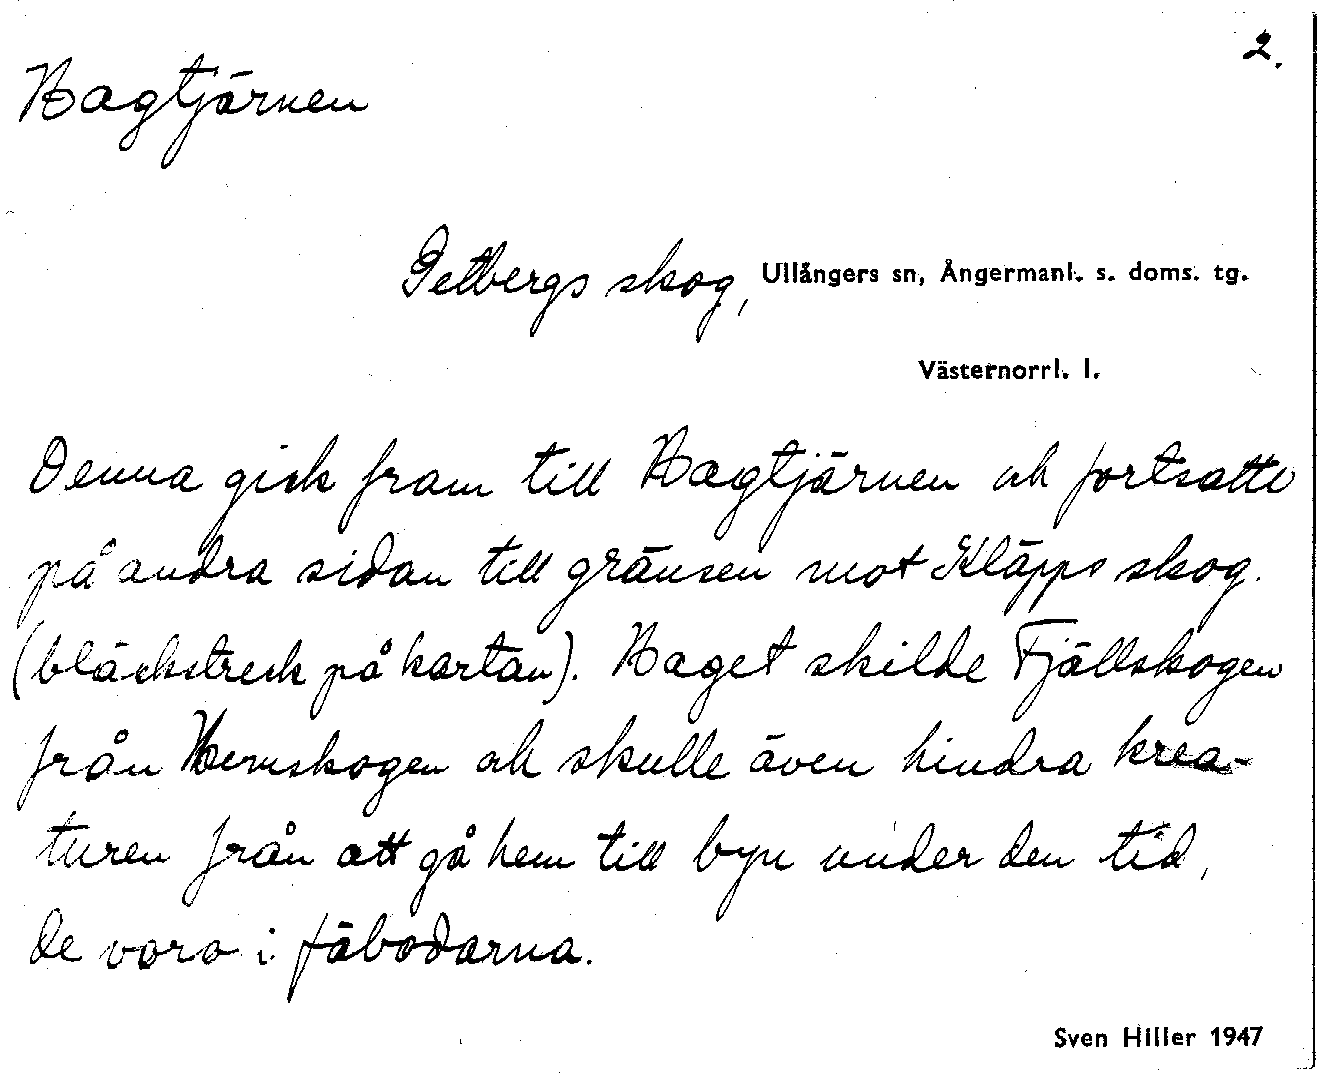 2.
Hagtjärnen
Getbergs skog, Ullångers sn, Ångermanl. s. doms. tg.
Västernorrl. l.
Denna gick fram till Hagtjärnen och fortsatte
på andra sidan till gränsen mot Kläpps skog.
(bläckstreck på kartan). Haget skilde Fjällskogen
från Hemskogen och skulle även hindra krea-
turen från att gå hem till byn under den tid,
de voro i fäbodarna.
Sven Hiller 1947